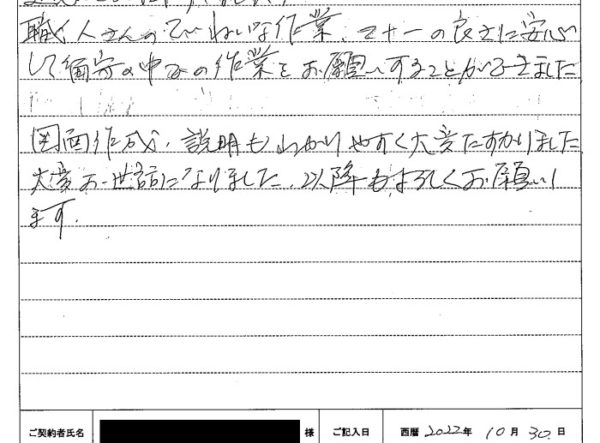 職人さんのていねいな作業、マナーの良さに安心
して留守の中での作業をお願いすることができました
図面作成、説明もわかりやすく大変たすかりました
大変お世話になりました。以降もよろしくお願いし
ます。
ご契約者氏名 様 ご記入日 西暦 2022年 10月 30日